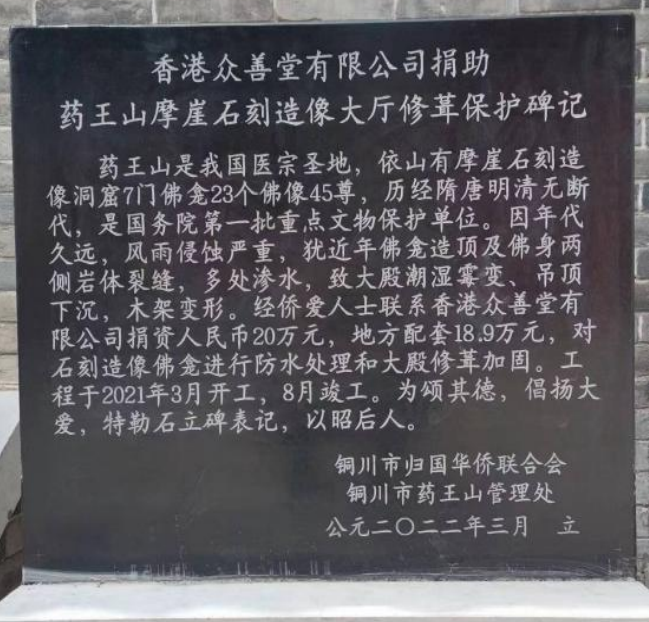 香港众善堂有限公司捐助
药王山摩崖石刻造像大厅修葺保护碑记
药王山是我国医宗圣地，依山有摩崖石刻造
像洞窟7门佛龛23个佛像45尊，历经隋唐明清无断
代，是国务院第一批重点文物保护单位。因年代
久远，风雨侵蚀严重，犹近年佛龛造顶及佛身两
侧岩体裂缝，多处渗水，致大殿潮湿霉变、吊顶
下沉，木架变形。经侨爱人士联系香港众善堂有
限公司捐资人民币20万元，地方配套18.9万元，对
石刻造像佛龛进行防水处理和大殿修葺加固。工
程于2021年3月开工，8月竣工。为颂其德，倡扬大
爱，特勒石立碑表记，以昭后人。
铜川市归国华侨联合会
铜川市药王山管理处
公元二〇二二年三月 立